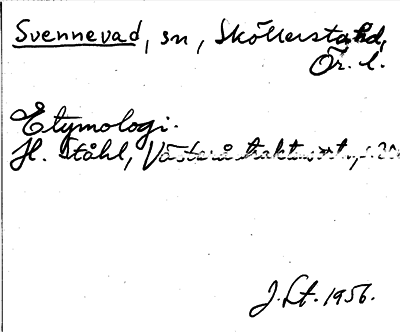 Svennevad, sn, Sköllerstahd,
Ör. l.
Etymologi.
H. Ståhl, Västerå
J. Lt. 1956.